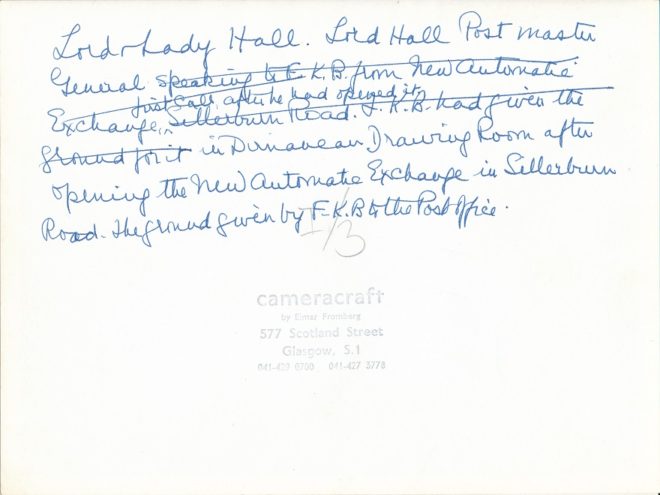 Lord & Lady Hall. Lord Hall Post Master
General speaking to F.K.B. from New Automatic
first call after he had opened it
Exchange, Sillerburn Road. F.K.B. had given the
ground for it in Dirnanean Drawing Room after
opening the New Automatic Exchange in Sillerburn
Road. The ground given by F.K.B to the Post Office.
1/3
cameracraft
by Elmar Fromberg
577 Scotland Street
Glasgow, S.1
041-427 0700 041-427 3778